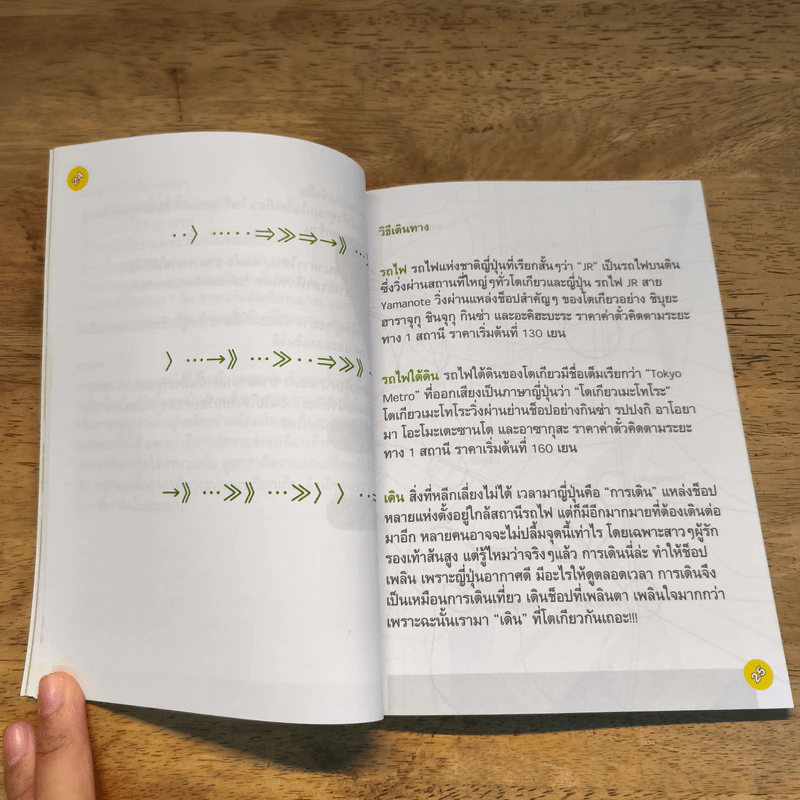 24
วิธีเดินทาง
รถไฟ รถไฟแห่งชาติญี่ปุ่นที่เรียกสั้นๆว่า "JR" เป็นรถไฟบนดิน
ซึ่งวิ่งผ่านสถานที่ใหญ่ๆทั่วโตเกียวและญี่ปุ่น รถไฟ JR สาย
Yamanote วิ่งผ่านแหล่งช็อปสำคัญๆ ของโตเกียวอย่าง ชิบุยะ
ฮาราจุกุ ชินจุกุ กินซ่า และอะคิฮะบะระ ราคาค่าตั๋วคิดตามระยะ
ทาง 1 สถานี ราคาเริ่มต้นที่ 130 เยน
รถไฟใต้ดิน รถไฟใต้ดินของโตเกียวมีชื่อเต็มเรียกว่า "Tokyo
Metro" ที่ออกเสียงเป็นภาษาญี่ปุ่นว่า "โตเกียวเมะโทโระ"
โตเกียวเมะโทโระวิ่งผ่านย่านช็อปอย่างกินซ่า รปปงกิ อาโอยา
มา โอะโมะเตะซานโด และอาซากุสะ ราคาค่าตั๋วคิดตามระยะ
ทาง 1 สถานี ราคาเริ่มต้นที่ 160 เยน
เดิน สิ่งที่หลีกเลี่ยงไม่ได้ เวลามาญี่ปุ่นคือ "การเดิน" แหล่งช็อป
หลายแห่งตั้งอยู่ใกล้สถานีรถไฟ แต่ก็มีอีกมากมายที่ต้องเดินต่อ
มาอีก หลายคนอาจจะไม่ปลื้มจุดนี้เท่าไร โดยเฉพาะสาวๆผู้รัก
รองเท้าส้นสูง แต่รู้ไหมว่าจริงๆแล้ว การเดินนี่ล่ะ ทำให้ช็อป
เพลิน เพราะญี่ปุ่นอากาศดี มีอะไรให้ดูตลอดเวลา การเดินจึง
เป็นเหมือนการเดินเที่ยว เดินช็อปที่เพลินตา เพลินใจมากกว่า
เพราะฉะนั้นเรามา "เดิน" ที่โตเกียวกันเถอะ!!!
25